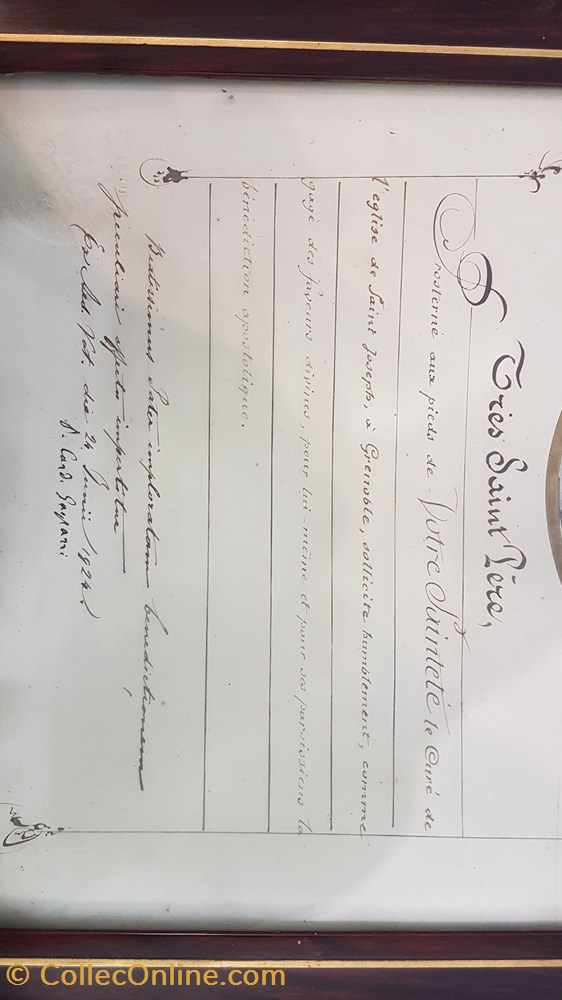 Très Saint Père,
Prosterné aux pieds de Votre Sainteté le Curé de
l'église de Saint Joseph, à Grenoble, sollicite humblement, comme
gage des faveurs divines, pour lui-même et pour ses paroissiens la
bénédiction apostolique.
Beatissimus Pater imploratam benedictionem
peculiari affectu impertitur
Ex Aed. Vat. die 24 Junii 1924.
P. Card. Gasparri
© CollecOnline.com